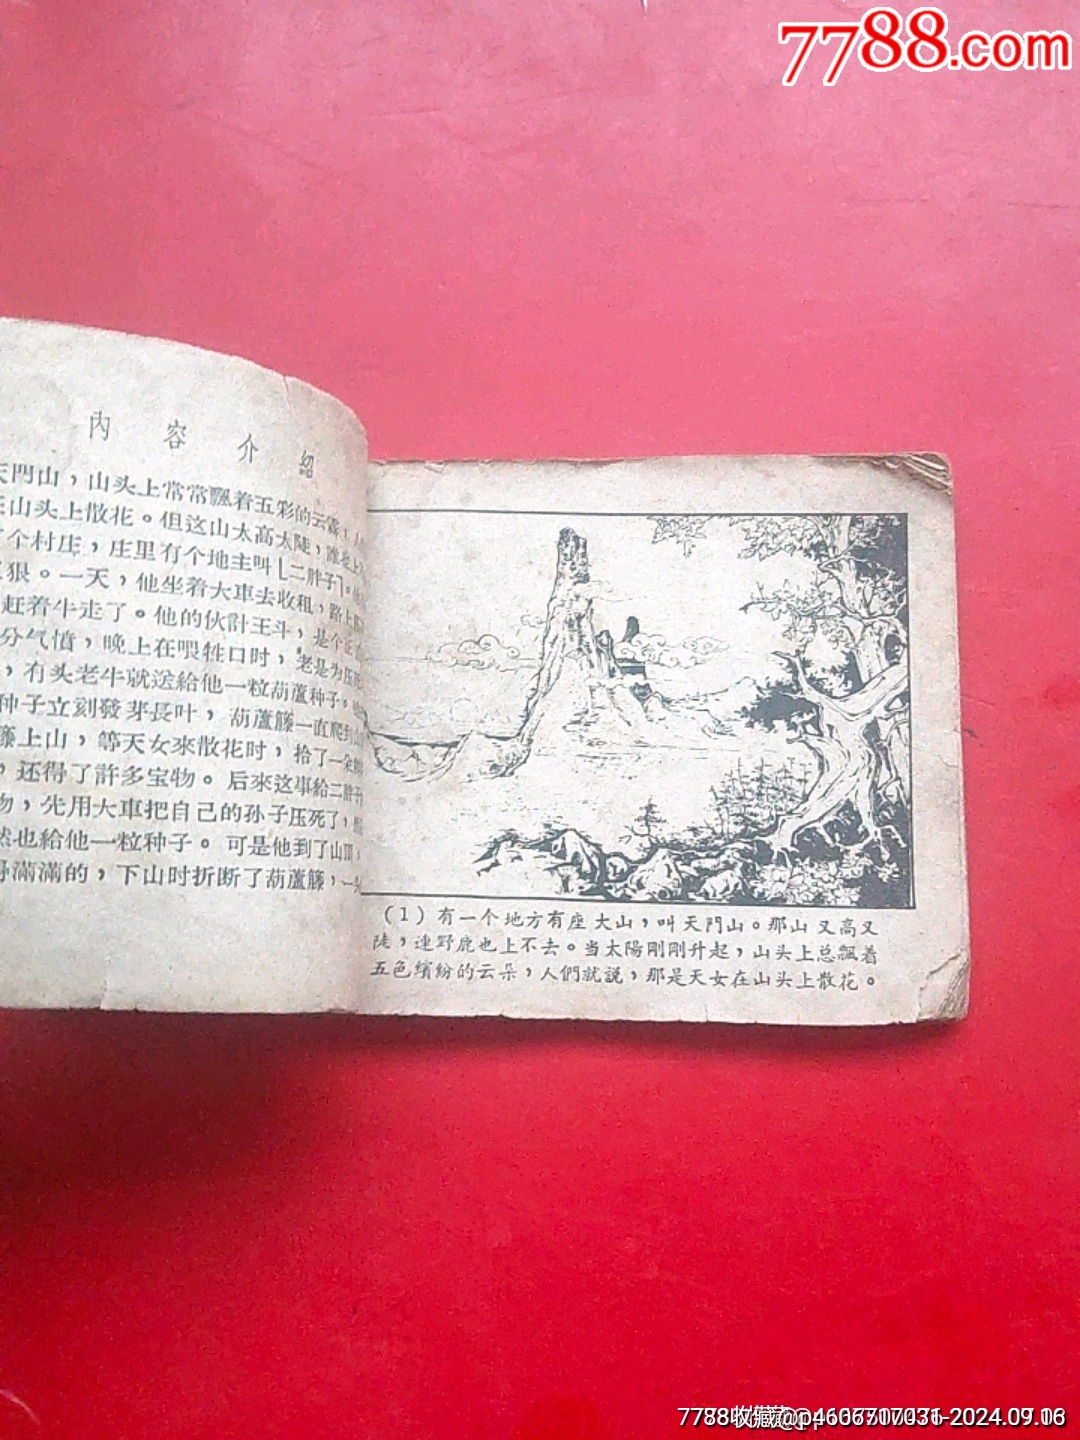 7788.com
内容介紹
天門山，山头上常常飄着五彩的云霞，
山头上散花。但这山太高太陡，誰也上
个村庄，庄里有个地主叫「二胖子」。
狠。一天，他坐着大車去收租，路上
赶着牛走了。他的伙計王斗，是个
分气憤，晚上在喂牲口时，老是为
，有头老牛就送給他一粒葫蘆种子。
种子立刻發芽長叶，葫蘆籐一直爬到山
籐上山，等天女來散花时，拾了一朵
，还得了許多宝物。后來这事給二胖子
物，先用大車把自己的孙子压死了，
然也給他一粒种子。可是他到了山頂，
得滿滿的，下山时折断了葫蘆籐，一
(1)有一个地方有座大山，叫天門山。那山又高又
陡，連野鹿也上不去。当太陽剛剛升起，山头上总飄着
五色繽紛的云朵，人們就説，那是天女在山头上散花。